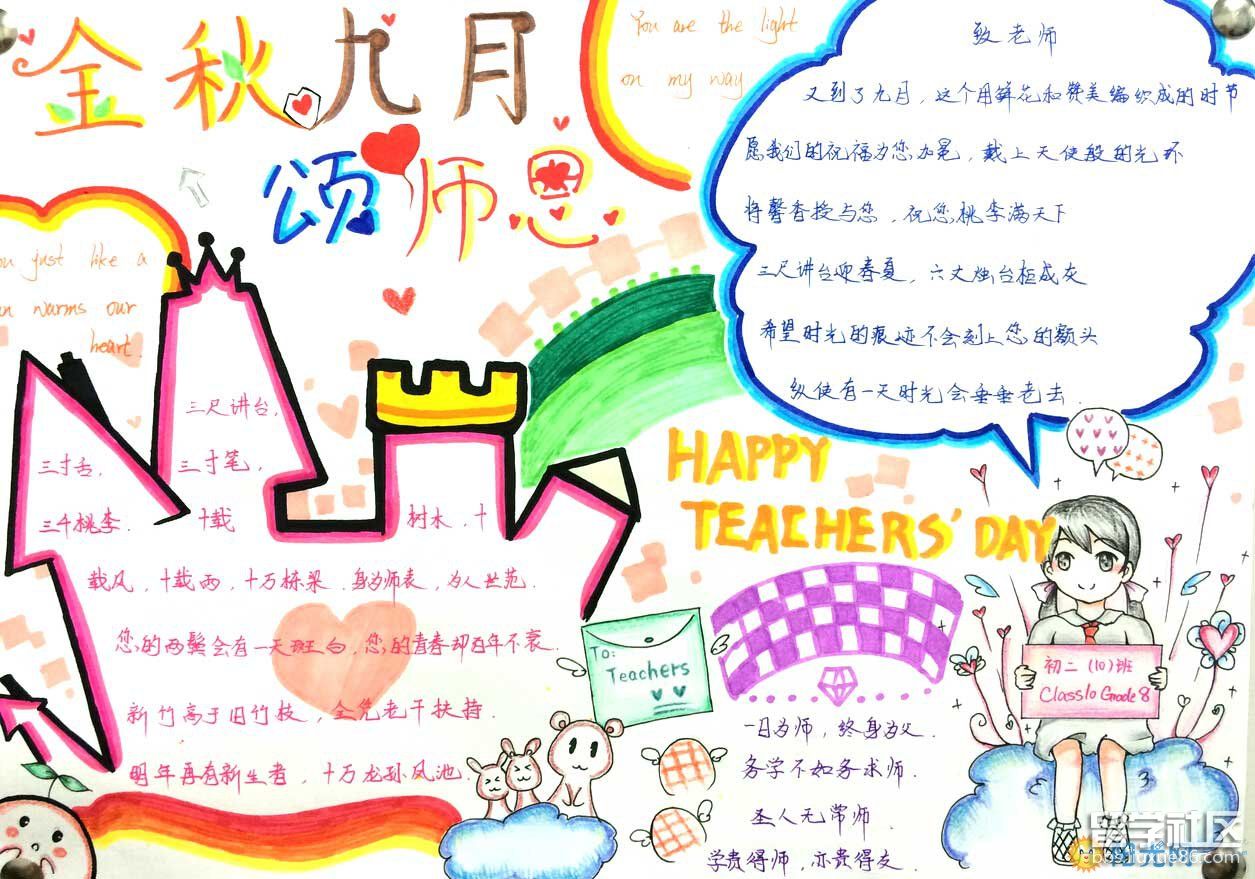 金秋九月
颂师恩
You are the light
on my way
致老师
又到了九月，这个用鲜花和赞美编织成的时节
愿我们的祝福为您加冕，戴上天使般的光环
将馨香授与您，祝您桃李满天下
三尺讲台迎春夏，六丈烛台柜成灰
希望时光的痕迹不会刻上您的额头
纵使有一天时光会垂垂老去.
ou just like a
n warms our
heart.
三尺讲台，
三寸舌， 三寸笔，
三千桃李. 十载 树木，十
载风，十载雨，十万栋梁.身为师表，为人世范.
您的两鬓会有一天斑白，您的青春却百年不衰.
新竹高于旧竹枝，全凭老干扶持.
明年再有新生者，十万龙孙凤池.
HAPPY
TEACHERS' DAY
To:
Teachers
初二（10）班
Class10 Grade8
一日为师，终身为父.
务学不如务求师.
圣人无常师.
学贵得师，亦贵得友.
留学社区
bbs.liuxue86.com